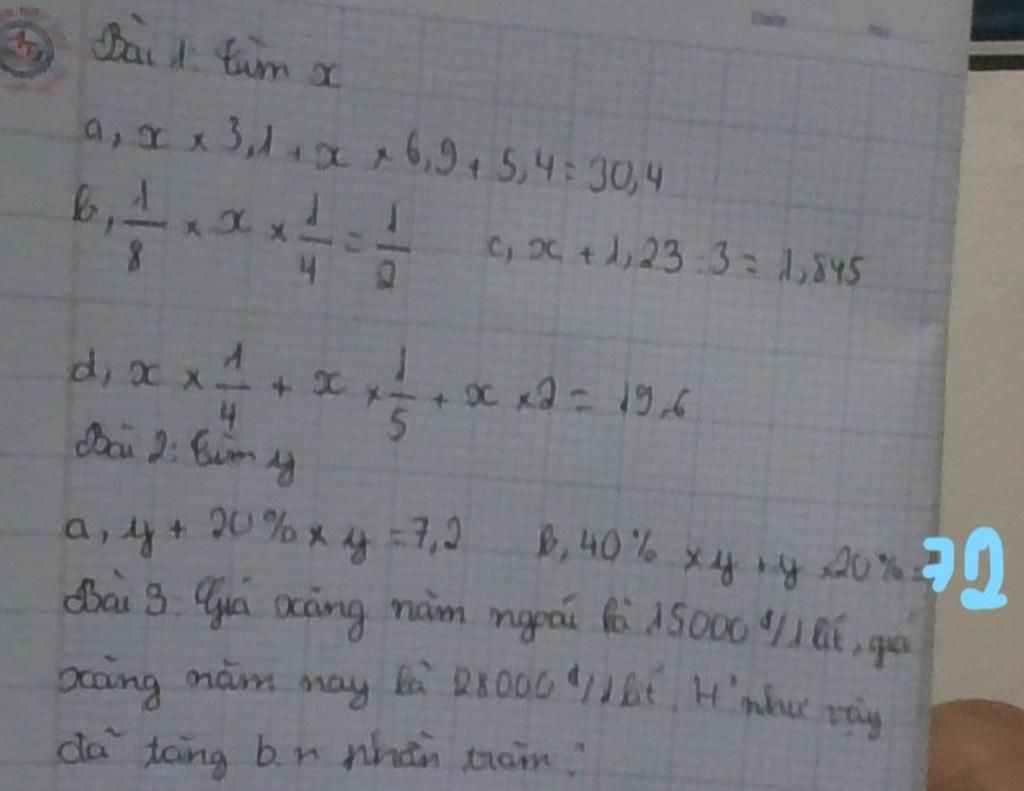 Bài 1. tìm x
a, x × 3,1 + x × 6,9 + 5,4 = 30,4
b, 1/8 × x × 1/4 = 1/2 c, x + 1,23 : 3 = 1,845
d, x × 1/4 + x × 1/5 + x × 2 = 19,6
Bài 2: tìm y
a, y + 20% × y = 7,2 b, 40% × y + y × 20% = 72
Bài 3. Giá xăng năm ngoái là 15000 đ/1 lít, giá
xăng năm nay là 28000 đ/1 lít. H như vậy
đã tăng b.n phần trăm?